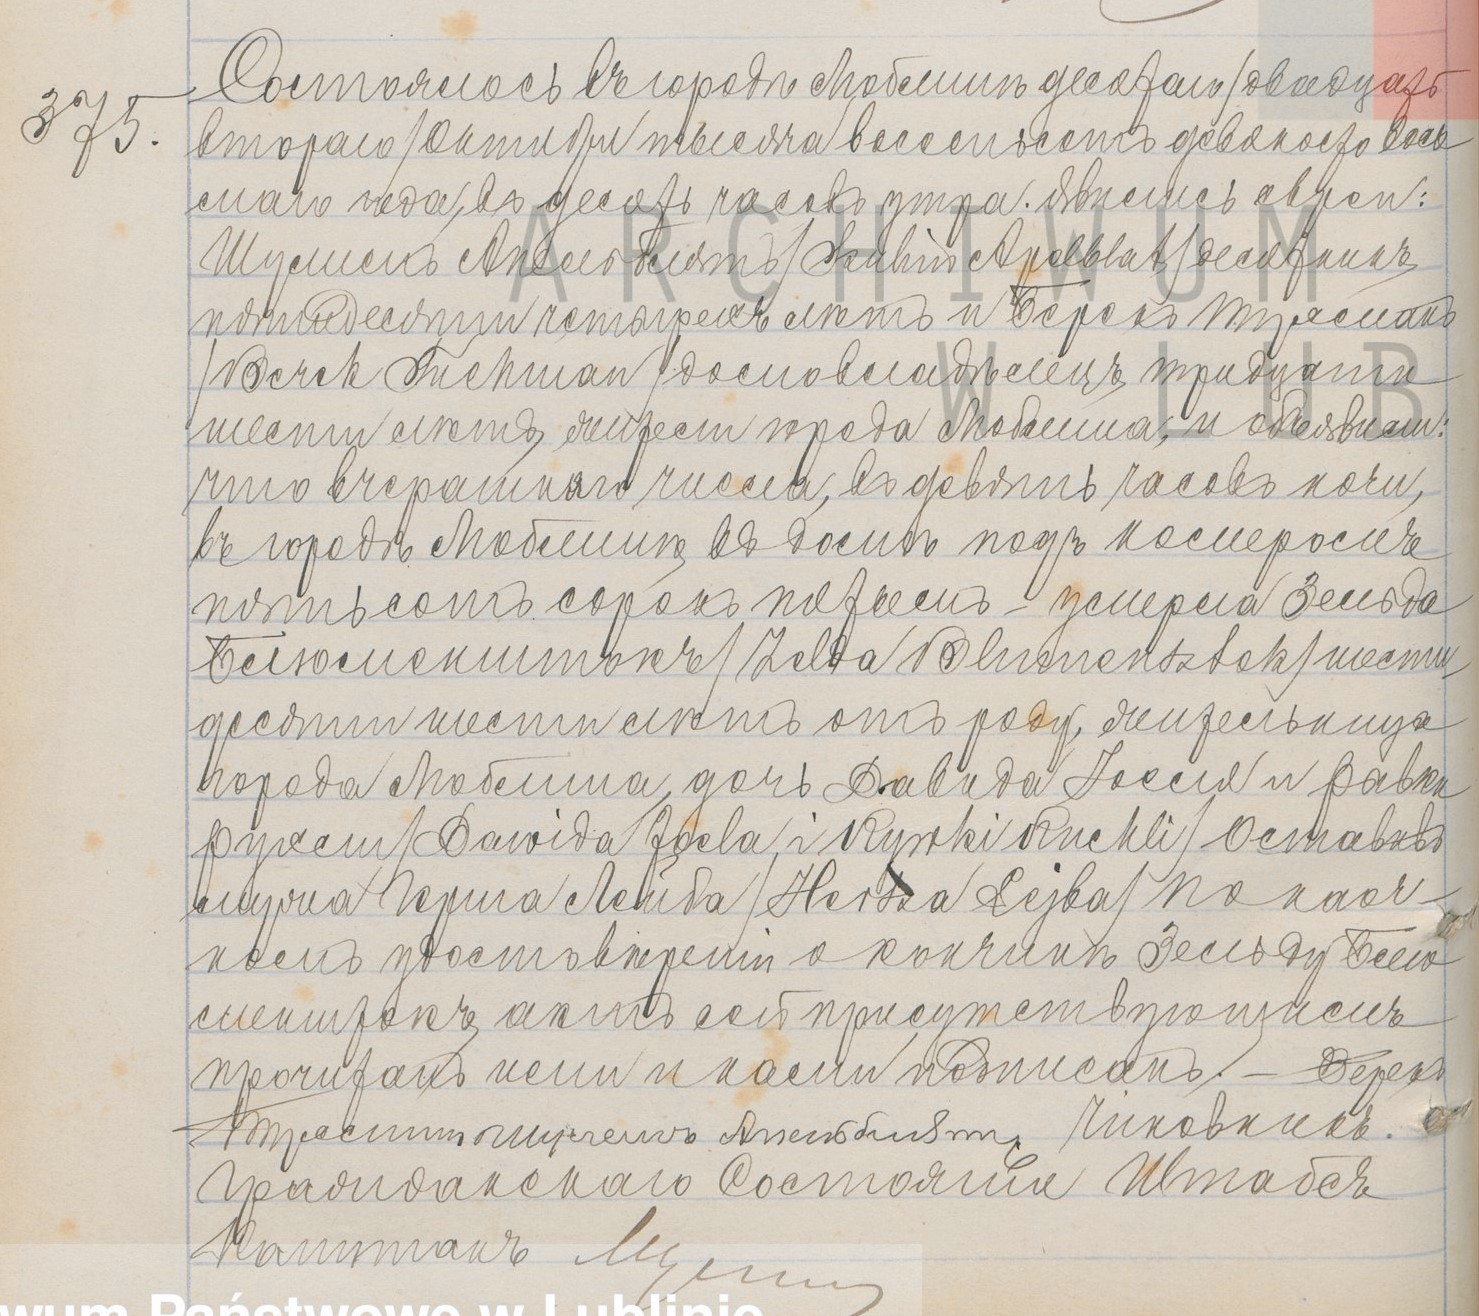 375.
Состоялось въ городѣ Люблинѣ десятаго /двадцать
втораго/ Октября тысяча восемьсотъ девяносто вось
маго года, въ десять часовъ утра. Явились евреи:
Шулимъ Апельблятъ /Szulim Apelblat/ десятникъ
пятидесяти четырехъ лѣтъ и Берекъ Тухманъ
/Berek Tuchman/ домовладѣлецъ, тридцати
шести лѣтъ, жители города Люблина, и объявили:
что вчерашняго числа, въ девять часовъ ночи,
въ городѣ Люблинѣ, въ домѣ подъ номеромъ
пятьсотъ сорокъ пятымъ – умерла Зельда
Блюменштокъ /Zelda Blumensztok/ шести
десяти шести лѣтъ отъ роду, жительница
города Люблина, дочь Давида Іоселя и Рывки
Рухли /Dawida Josla i Rywki Ruchli/ Оставивъ
мужа Герша Лейба /Herszka Lejba/ По наоч-
номъ удостовѣреніи о кончинѣ Зельды Блю
менштокъ, актъ сей присутствующимъ
прочитанъ ими и нами подписанъ. – Берекъ
Тухманъ Шулимъ Апельблятъ, Чиновникъ.
Гражданскаго Состоянія Штабсъ
Капитанъ
ARCHIWUM
W LUB
wum Państwowe w Lublinie